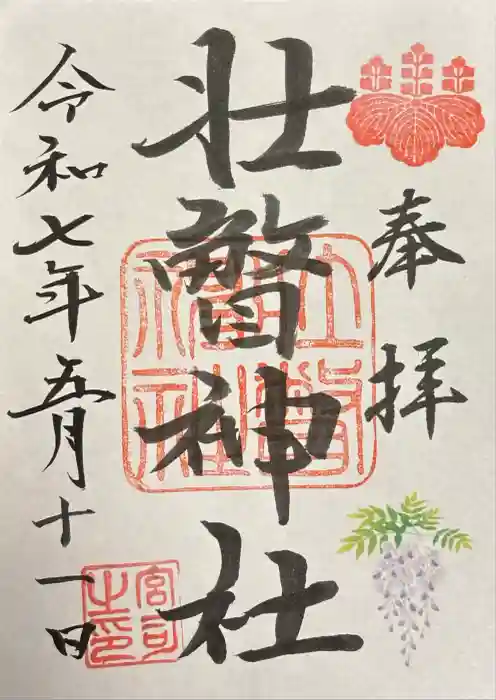 奉拝
壮瞥神社
壮瞥神社
令和七年五月十一日
宮司之印